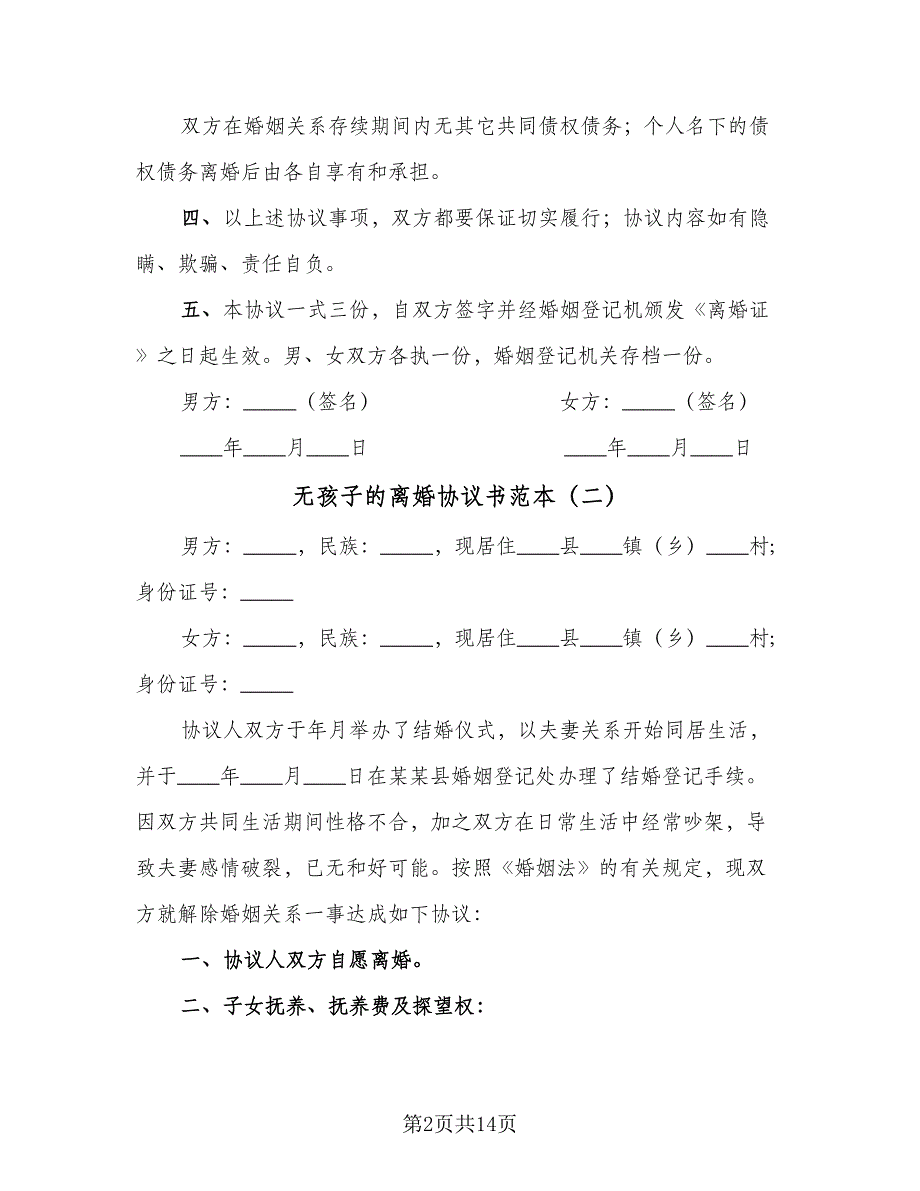 双方在婚姻关系存续期间内无其它共同债权债务；个人名下的债
权债务离婚后由各自享有和承担。
四、以上述协议事项，双方都要保证切实履行；协议内容如有隐
瞒、欺骗、责任自负。
五、本协议一式三份，自双方签字并经婚姻登记机颁发《离婚证
》之日起生效。男、女双方各执一份，婚姻登记机关存档一份。
男方：_____（签名） 女方：_____（签名）
____年____月____日 ____年____月____日
无孩子的离婚协议书范本（二）
男方：_____，民族：_____，现居住____县____镇（乡）____村;
身份证号：_____
女方：_____，民族：_____，现居住____县____镇（乡）____村;
身份证号：_____
协议人双方于年月举办了结婚仪式，以夫妻关系开始同居生活，
并于____年____月____日在某某县婚姻登记处办理了结婚登记手续。
因双方共同生活期间性格不合，加之双方在日常生活中经常吵架，导
致夫妻感情破裂，已无和好可能。按照《婚姻法》的有关规定，现双
方就解除婚姻关系一事达成如下协议：
一、协议人双方自愿离婚。
二、子女抚养、抚养费及探望权：
第2页共14页